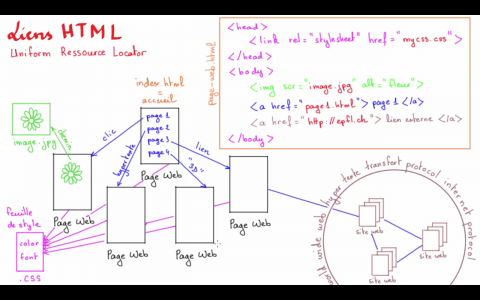 Liens HTML
Uniform Ressource Locator
page-web.html
<head>
<link rel="stylesheet" href="mycss.css">
</head>
<body>
<img scr="image.jpg" alt="fleur">
<a href="page1.html"> page 1 </a>
<a href="http://epfl.ch"> lien externe </a>
</body>
index.html
=
accueil
page 1
page 2
page 3
page 4
clic
hypertexte
lien
"3D"
chemin
image.jpg
Page Web
Page Web
Page Web
Page Web
Page Web
feuille
de style
color
font
.CSS
world wide web hyper texte transfert protocol internet protocol
site web
site web
site web